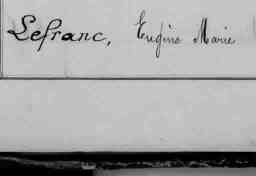 Lefranc, Eugène Marie